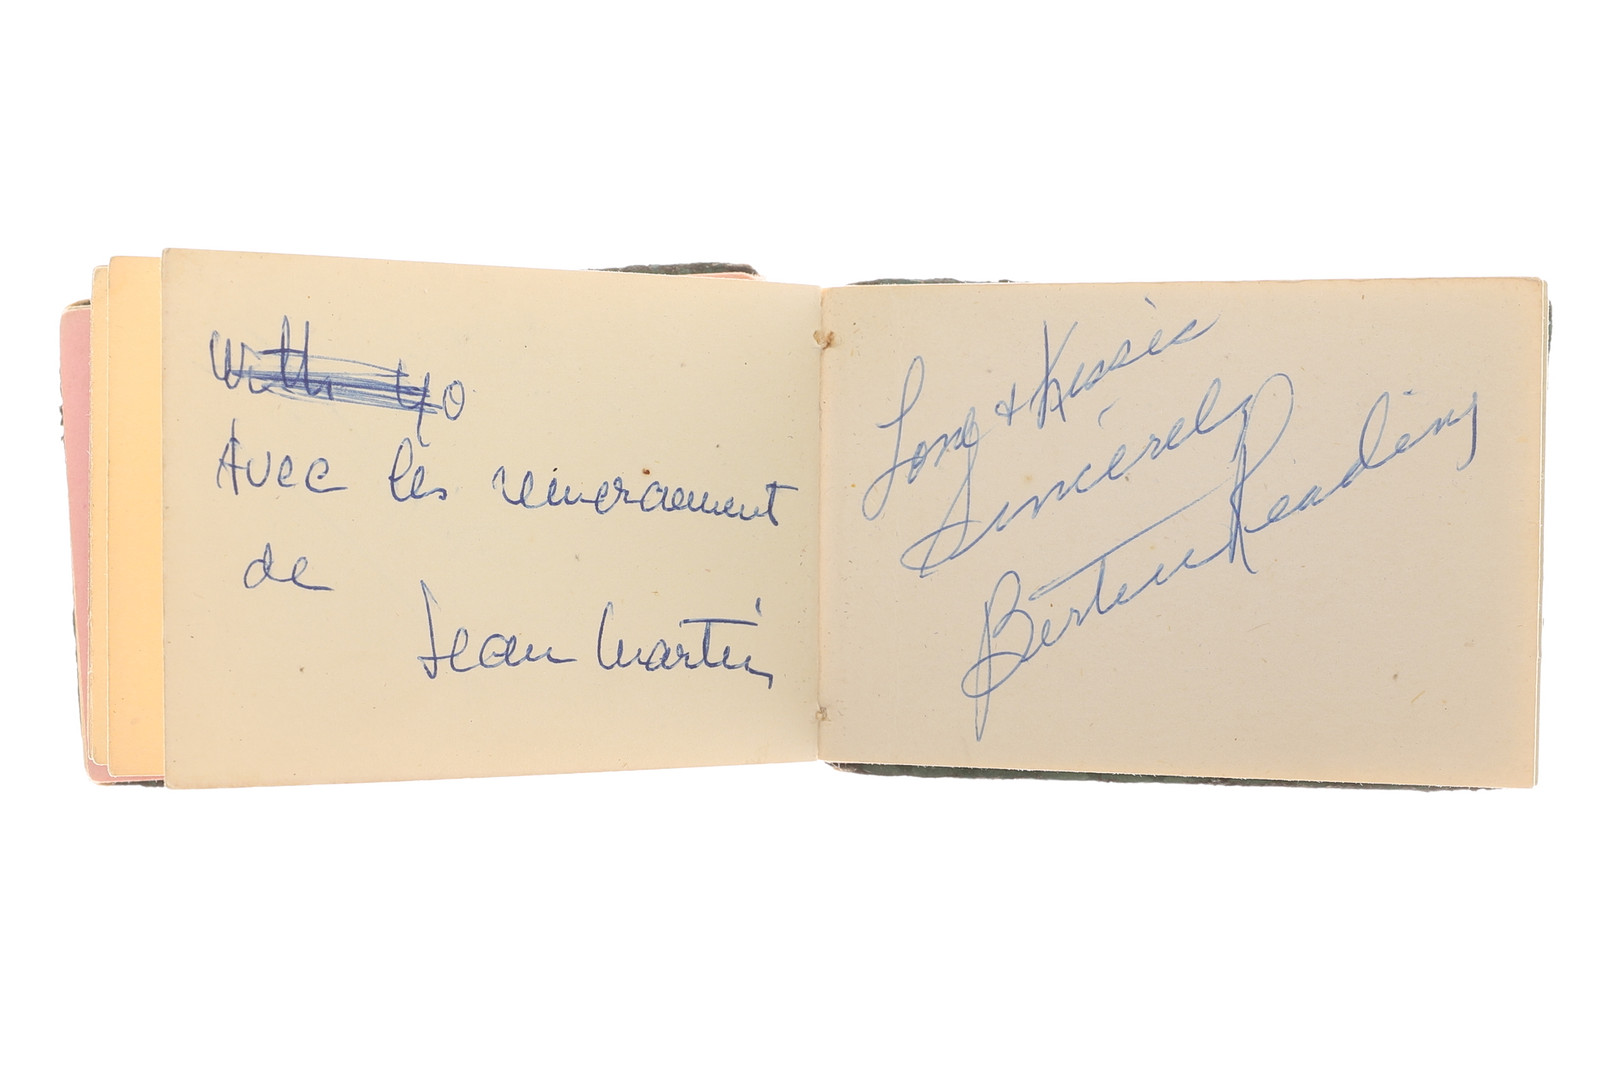 With yo
Avec les remerciement
de
Jean Martin
Love + Kisses
Sincerely
Bertice Reading